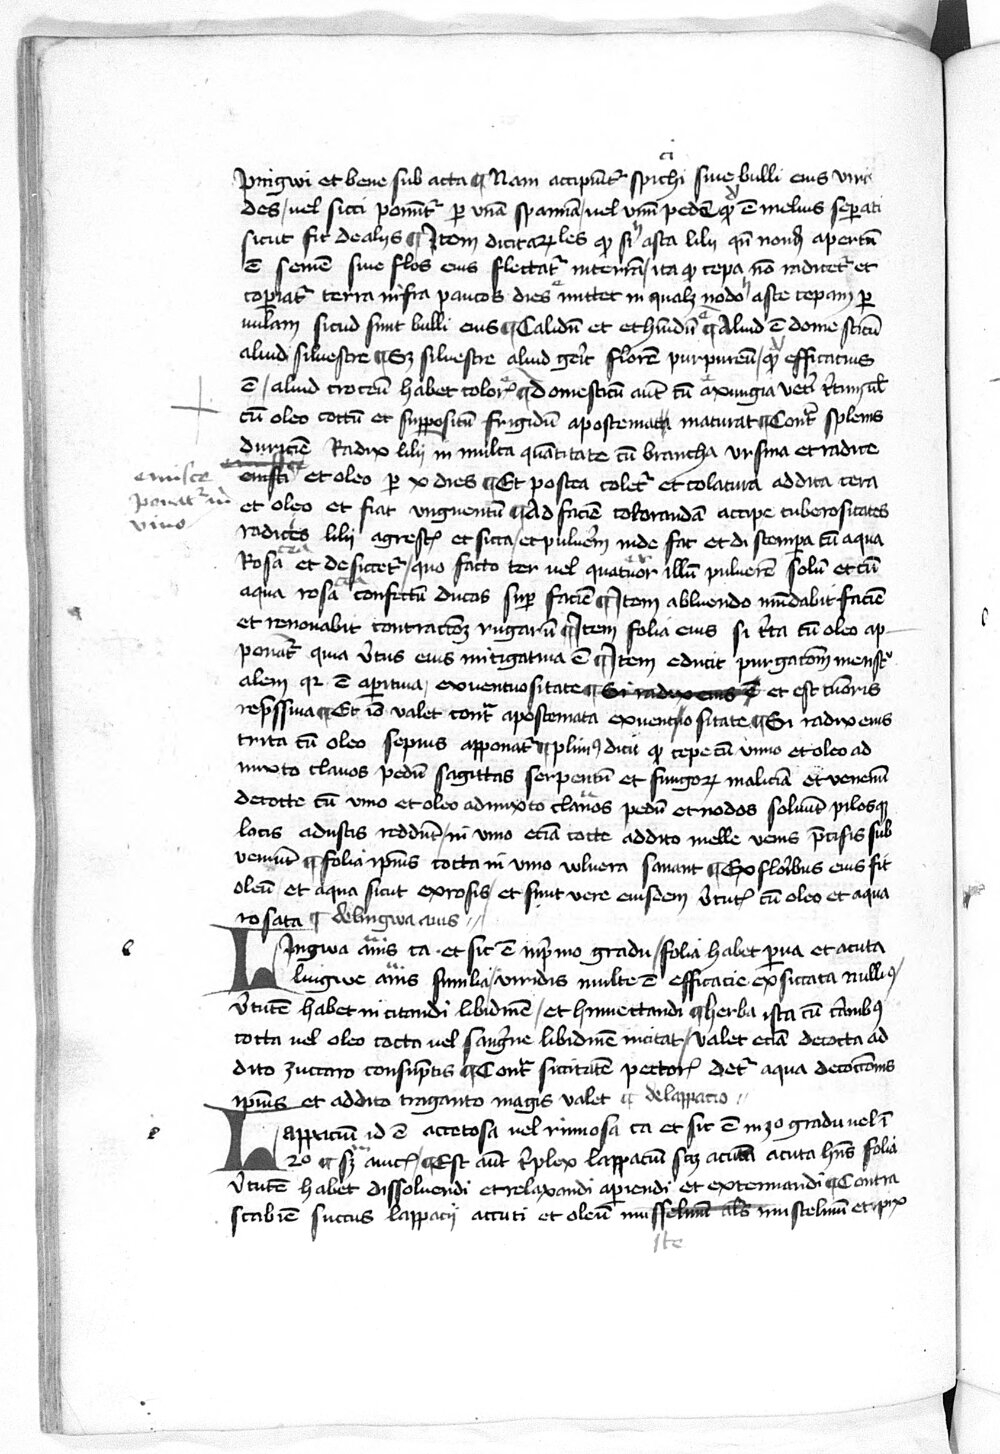 pingwi et bene sub acta ¶ Nam accipiu͂tr spichi siue bulli eius viri
des / vel sicci ponu͂tr p vna͂ spanna͂ / vel vnu͂ pede͂ qr e͂ melius sepati
sicut fit de alijs ¶ Item dicit arles qr si hasta lilij qn͂ nond͂ apertu͂
e͂ seme͂ siue flos eius flectatr in terra͂ / ita qr cepa no͂ radicetr et
copiatr terra infra paucos dies mittet in qualz nodo haste cepam p
vulam sicud sunt bulli eius ¶ Calidu͂ et et humdu͂ ¶ Aliud e͂ domesticu͂
aliud siluestre ¶ Sz siluestre aliud ge͂it flore͂ purpureu͂ / qr efficatius
e͂ / aliud croceu͂ habet colore͂ ¶ domesticu͂ aut͂ cu͂ axungia vet͂i
cu͂ oleo coctu͂ et suppositu͂ frigidu͂ apostemata maturat ¶ Contr͂ splenis
duricie͂ Radix lilij in multa qua͂titate cu͂ brancha vrsina et radice
emisce
ponatr in
vino
et oleo p x dies ¶ Et postea coletr et colatura addita cera
et oleo et fiat vnguentu͂ ¶ Ad facie͂ coloranda͂ accipe tuberositates
radices lilij agrest͂ et sicca / et pulue͂m inde fac et distempa cu͂ aqua
Rosacea et desiccetr / quo facto ter vel quatuor illu͂ puluere͂ solu͂ et cu͂
aqua rosacea confectu͂ ducas sup facie͂ ¶ Item abluendo mu͂dabit facie͂
et renouabit contractoz rugaru͂ ¶ Item folia eius si t͂ta cu͂ oleo ap
ponatr quia v͂tus eius mitigatiua e͂ ¶ Item educit purgaco͂m menstr
alem qr e͂ apitiua / ex ventuositate ¶ Si radix eius e͂ et est tu͂oris
rep͂ssiua ¶ Et io͂ valet cont͂ apostemata ex ventuositate ¶ Si radix eius
trita cu͂ oleo sepius apponatr ¶ plini9 dicit qr cepe cu͂ vino et oleo ad
mixto clauos pedu͂ sagittas serpentu͂ et fungor͂ malicia͂ et venenu͂
decocte cu͂ vino et oleo admixto clauos pedu͂ et nodos soluu͂t pilosqz
locis adustis reddu͂t / in vino ecia͂ cocte addito melle venis p͂cisis sub
veniu͂t ¶ folia ipi͂us cocta in vino wlnera sanant ¶ Ex floribus eius fit
oleu͂ et aqua sicut ex rosis / et sunt vere eiusdem v͂tut͂ cu͂ oleo et aqua
rosata ¶ de lingwa auis
Lingwa auis ca et sic e͂ in p͂mo gradu / folia habet p͂ua et acuta
lingwe auis similia / viridis multe e͂ efficacie exsiccata nulli9 /
v͂tute͂ habet incitandi libidine͂ / et humectandi ¶ herba ista cu͂ ca͂nib9
cocta vel oleo cocta vel sang͂ne libidine͂ incitat / valet ecia͂ decocta ad
dito zuccaro consu͂ptis ¶ Cont͂ siccitate͂ pector͂ detr aqua decocco͂nis
ipi͂us et addito traganto magis valet ¶ de lappacio
Lappaciu͂ id e͂ accetosa vel rinnosa ca et sic e͂ in 3o gradu vel i͂
2o ¶ sz auic͂ / ¶ Est aut͂ t͂plex lappaciu͂ scz acutu͂ acuta hn͂s folia
v͂tute͂ habet dissoluendi et relaxandi apiendi et extenuandi ¶ Contra
scabie͂ succus lappacij accuti et oleu͂ musselinu͂ al͂s mustelinu͂ et pix
Ite